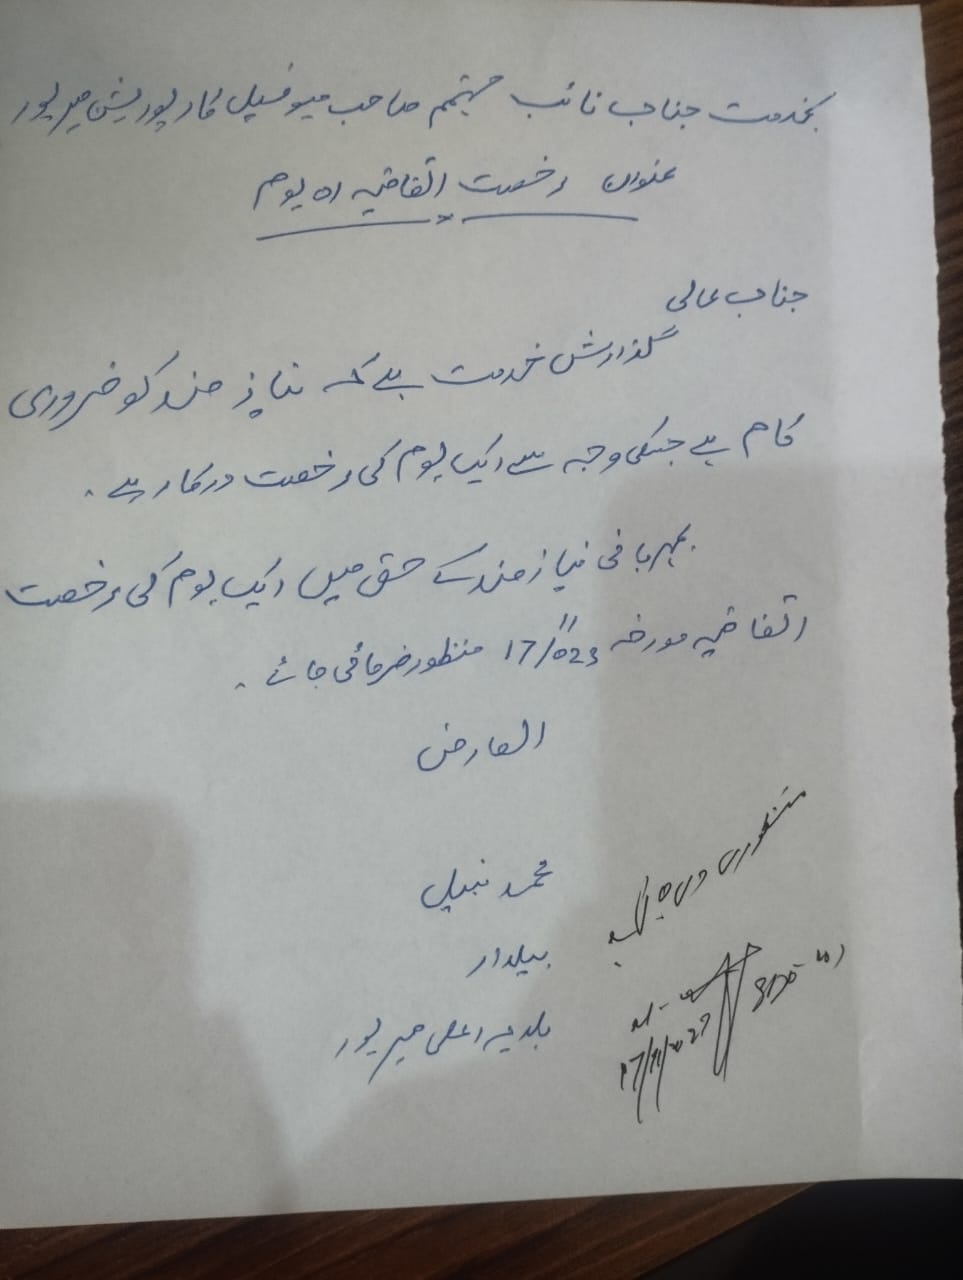 بخدمت جناب نائب مہتمم صاحب میونسپل کارپوریشن میرپور
عنوان رخصت اتفاقیہ 01 یوم
جناب عالی
گذارش خدمت ہے کہ نیاز مند کو ضروری
کام ہے جسکی وجہ سے ایک یوم کی رخصت درکار ہے۔
بمہربانی نیاز مند کے حق میں ایک یوم کی رخصت
اتفاقیہ مورخہ 17/11/023 منظور فرمائی جائے۔
العارض
محمد نبیل
بیلدار
بلدیہ اعلی میرپور
منظوری دی جاتی ہے
17/11/2023